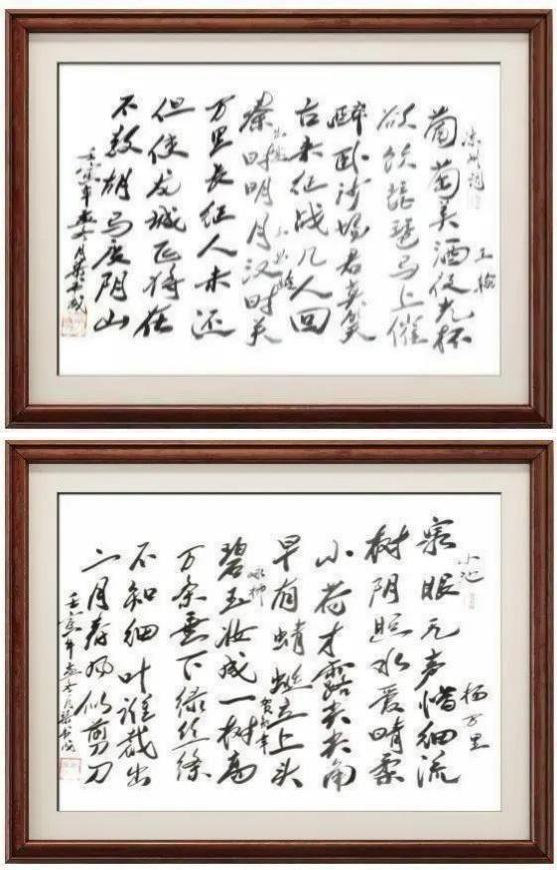 凉州词
王翰
葡萄美酒夜光杯
欲饮琵琶马上催
醉卧沙场君莫笑
古来征战几人回
出塞
王昌龄
秦时明月汉时关
万里长征人未还
但使龙城飞将在
不教胡马度阴山
壬寅年
小池
杨万里
泉眼无声惜细流
树阴照水爱晴柔
小荷才露尖尖角
早有蜻蜓立上头
咏柳
贺知章
碧玉妆成一树高
万条垂下绿丝绦
不知细叶谁裁出
二月春风似剪刀
壬寅年